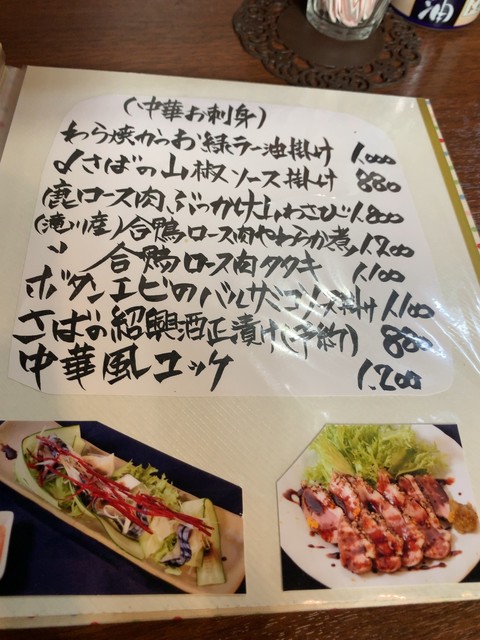 油
(中華お刺身)
わら焼かつお緑ラー油掛け 1,000
〆さばの山椒ソース掛け 880
鹿ロース肉ぶっかけ山わさび 1,800
(滝川産)合鴨ロース肉やわらか煮 1,200
〃 合鴨ロース肉タタキ 1,100
ボタンエビのバルサミコソース掛け 1,100
さばの紹興酒正漬け(予約) 880
中華風ユッケ 1,200